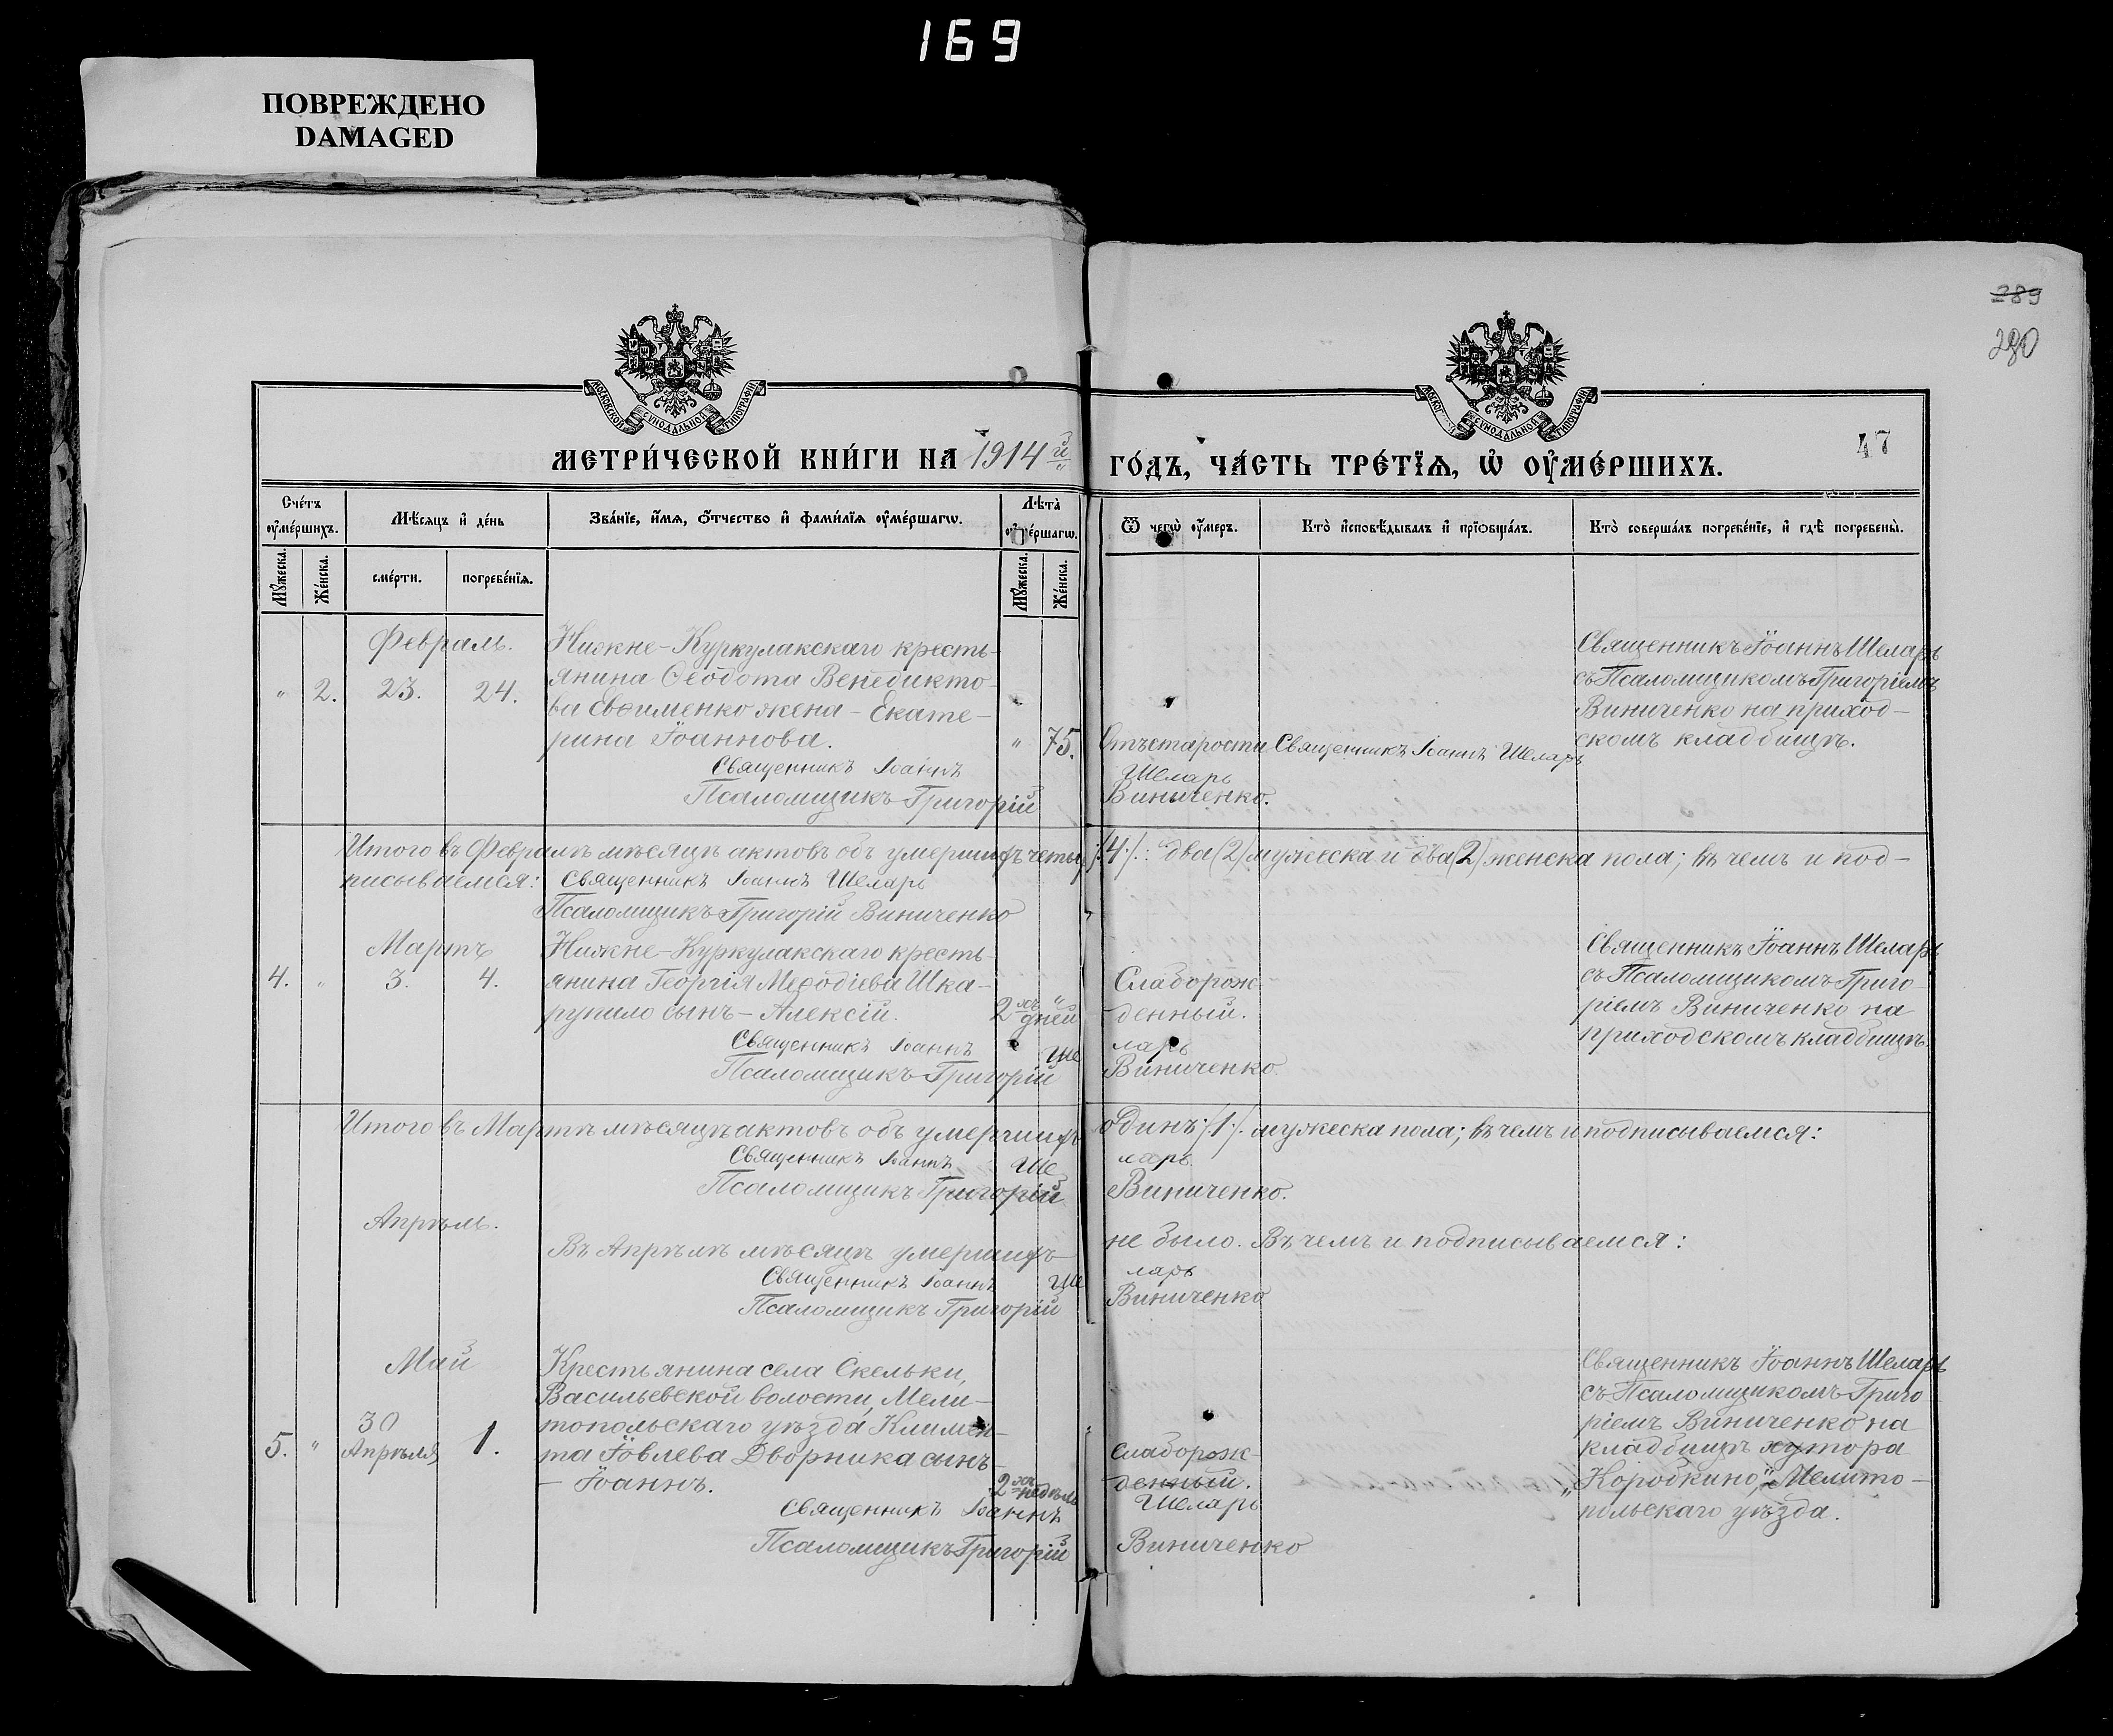 169
ПОВРЕЖДЕНО
DAMAGED
289
290
МОСКОВСКОЙ СѴНОДАЛЬНОЙ ТИПОГРАФІИ
МОСКОВ СѴНОДАЛЬНОЙ ТИПОГРАФІИ
47
МЕТРИ́ЧЕСКОЙ КНИ́ГИ НА 1914й
ГО́ДЪ, ЧА́СТЬ ТРЕ́ТЇѦ, Ѡ҆ ОУ҆МЕ́РШИХЪ.
Сче́тъ оу҆ме́ршихъ.
Мѣ́сѧцъ и҆ де́нь
Зва́нїе, и҆́мѧ, ѻ҆́тчество и҆ фами́лїѧ оу҆ме́ршагѡ.
Лѣ́та оу҆ме́ршагѡ.
Ѿ чегѡ̀ оу҆́меръ.
Кто̀ и҆сповѣ́дывалъ и҆ прїѡбща́лъ.
Кто̀ соверша́лъ погребе́нїе, и҆ гдѣ̀ погребены̀.
Мꙋ́жеска.
Же́нска.
сме́рти.
погребе́нїѧ.
Мꙋ́жеска.
Же́нска.
Февраль.
" 2. 23. 24.
Нижне-Куркулакскаго кресть-
янина Ѳеодота Венедикто-
ва Евѳименко жена - Екате-
рина Іоаннова.
" 75.
Отъ старости
Священникъ Іоаннъ Шеларь
Священникъ Іоаннъ Шеларь
съ Псаломщикомъ Григоріемъ
Виниченко на приход-
скомъ кладбищѣ.
Священникъ Іоаннъ Шеларь
Псаломщикъ Григорій Виниченко.
Итого въ Февралѣ мѣсяцѣ актовъ объ умершихъ четыр /.4./. два (2) мужеска и два (2) женска пола; въ чемъ и под-
писываемся: Священникъ Іоаннъ Шеларь
Псаломщикъ Григорій Виниченко
Мартъ
4. " 3. 4.
Нижне-Куркулакскаго кресть-
янина Георгія Меѳодіева Шка-
рупило сынъ - Алексій.
2хъ дней "
Слаборож-
денный.
Священникъ Іоаннъ Шеларь
съ Псаломщикомъ Григо-
ріемъ Виниченко на
приходскомъ кладбищѣ.
Священникъ Іоаннъ Шеларь
Псаломщикъ Григорій Виниченко
Итого въ Мартѣ мѣсяцѣ актовъ объ умершихъ одинъ /.1./. мужеска пола; въ чемъ и подписываемся:
Священникъ Іоаннъ Шеларь
Псаломщикъ Григорій Виниченко.
Апрѣль.
Въ Апрѣлѣ мѣсяцѣ умершихъ не было. Въ чемъ и подписываемся:
Священникъ Іоаннъ Шеларь
Псаломщикъ Григорій Виниченко
Май
5. " 30 Апрѣля 1.
Крестьянина села Скельки,
Васильевской волости, Мели-
топольскаго уѣзда Климен-
та Іовлева Дворника сынъ-
- Іоаннъ.
2хъ недѣль
Слаборож-
денный.
Священникъ Іоаннъ Шеларь
съ Псаломщикомъ Григо
ріемъ Виниченко на
кладбищѣ хутора
„Коробкино", Мелито-
польскаго уѣзда.
Священникъ Іоаннъ Шеларь
Псаломщикъ Григорій Виниченко